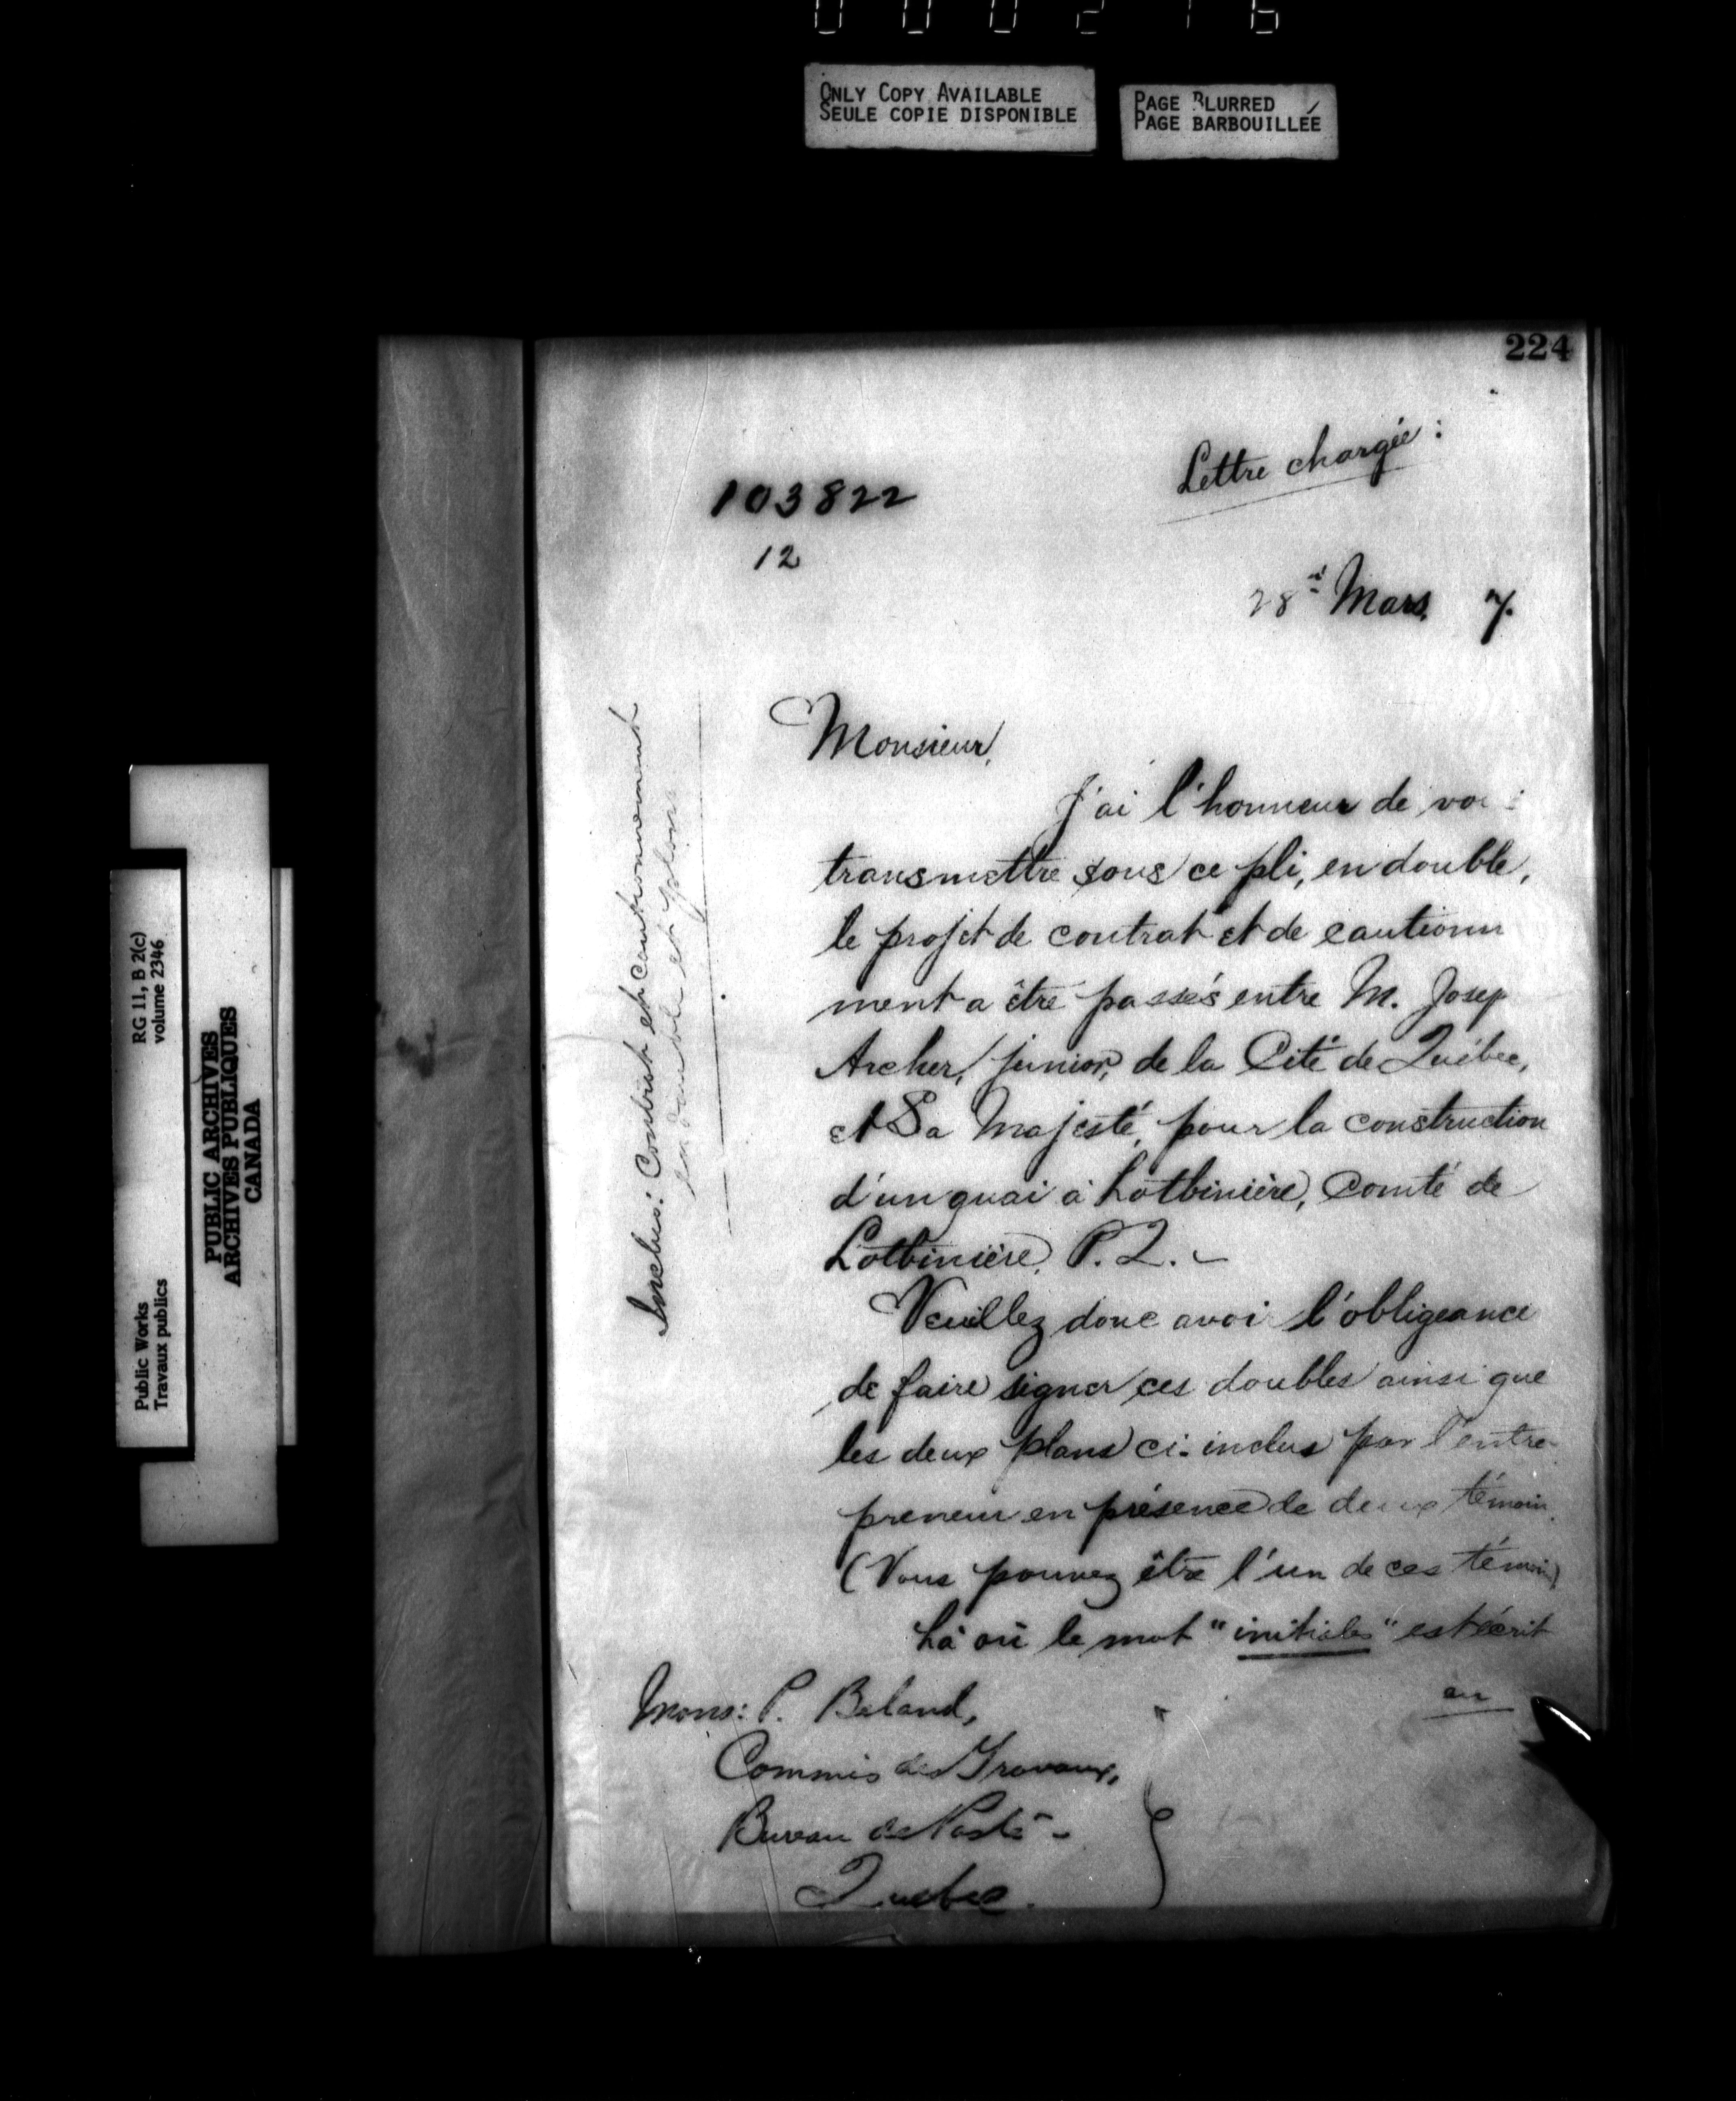 000216
ONLY COPY AVAILABLE
SEULE COPIE DISPONIBLE
PAGE BLURRED
PAGE BARBOUILLÉE
RG 11, B 2(c)
volume 2346
Public Works
Travaux publics
PUBLIC ARCHIVES
ARCHIVES PUBLIQUES
CANADA
224
Lettre chargée:
103822
12
28 Mars 7.
Monsieur,
J'ai l'honneur de vou
transmettre sous ce pli, en double,
le projet de contrat et de cautionn
ment a être passés entre M. Josep
Archer, junior, de la Cité de Québec,
et Sa Majesté, pour la construction
d'un quai à Lotbinière, Comté de
Lotbinière, P. Q. -
Veuillez donc avoi l'obligeance
de faire signer ces doubles ainsi que
les deux plans ci-inclus par l'entre-
preneur en présence de deux témoin
(Vous pouvez être l'un de ces témoin)
Là où le mot "initiales" est écrit
au
Mons: P. Beland,
Commis des Travaux,
Bureau de Poste -
Québec.
Inclus: Contrat et cautionnement
en double et plans